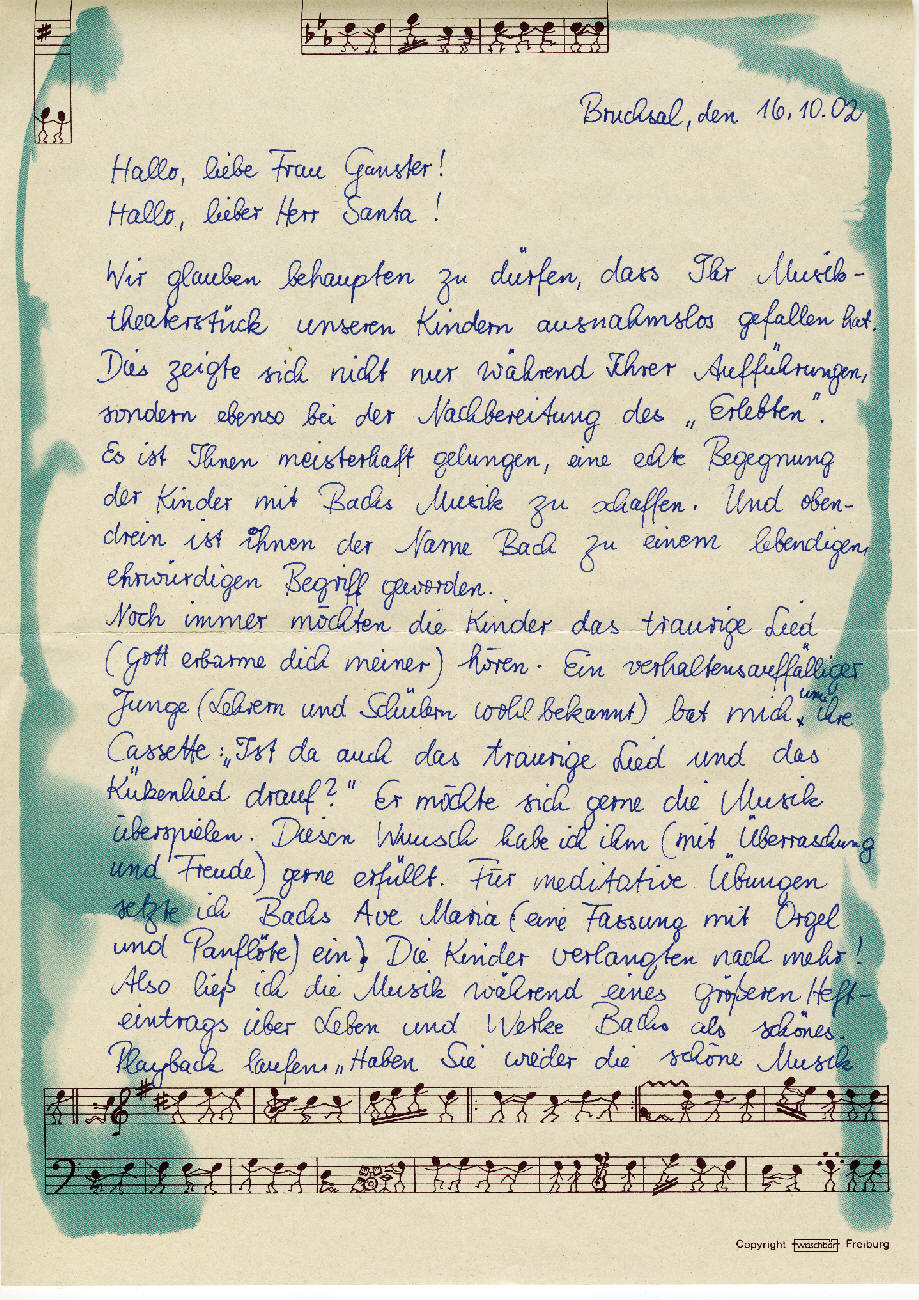 Bruchsal, den 16.10.02
Hallo, liebe Frau Ganster!
Hallo, lieber Herr Santa!
Wir glauben behaupten zu dürfen, dass Ihr Musik-
theaterstück unseren Kindern ausnahmslos gefallen hat.
Dies zeigte sich nicht nur während Ihrer Aufführungen,
sondern ebenso bei der Nachbereitung des „Erlebten".
Es ist Ihnen meisterhaft gelungen, eine echte Begegnung
der Kinder mit Bachs Musik zu schaffen. Und oben-
drein ist ihnen der Name Bach zu einem lebendigen,
ehrwürdigen Begriff geworden.
Noch immer möchten die Kinder das traurige Lied
(Gott erbarme dich meiner) hören. Ein verhaltensauffälliger
Junge (Lehrern und Schülern wohl bekannt) bat mich um ihre
Cassette: „Ist da auch das traurige Lied und das
Kükenlied drauf?" Er möchte sich gerne die Musik
überspielen. Diesen Wunsch habe ich ihm (mit Überraschung
und Freude) gerne erfüllt. Für meditative Übungen
setzte ich Bachs Ave Maria (eine Fassung mit Orgel
und Panflöte) ein. Die Kinder verlangten nach mehr!
Also ließ ich die Musik während eines größeren Heft-
eintrags über Leben und Werke Bachs als schönes
Playback laufen. „Haben Sie wieder die schöne Musik
Copyright Waschbär Freiburg